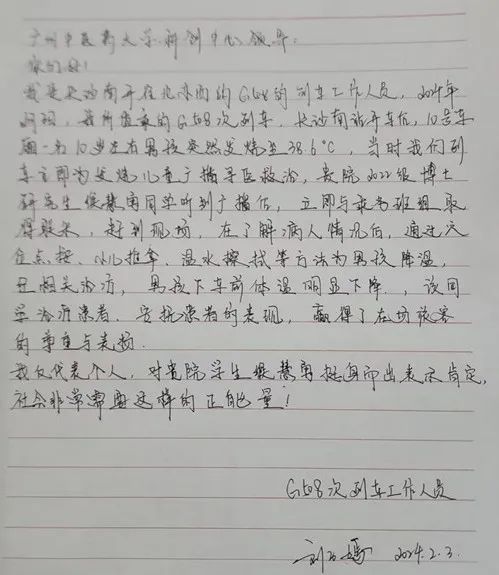 广州中医药大学科创中心领导:
你们好!
我是长沙南开往北京西的G508的列车工作人员,2024年
我所值乘的G508次列车,长沙南站开车后,10号车
厢一名10岁左右男孩突然发烧至38.6°C,当时我们列
车立即为发烧儿童广播寻医救治,贵院2022级博士
研究生 同学听到广播后,立即与乘务班组取
得联系,赶到现场,在了解病人情况后,通过穴
位点按、小儿推拿、温水擦拭等方法为男孩降温,
相关治疗,男孩下车前体温明显下降,该同
学治病患者、安抚患者的表现,赢得了在场旅客
的尊重与表扬.
我仅代表个人,对贵院学生 挺身而出表示肯定,
社会非常需要这样的正能量!
G508次列车工作人员
刘 2024.2.3